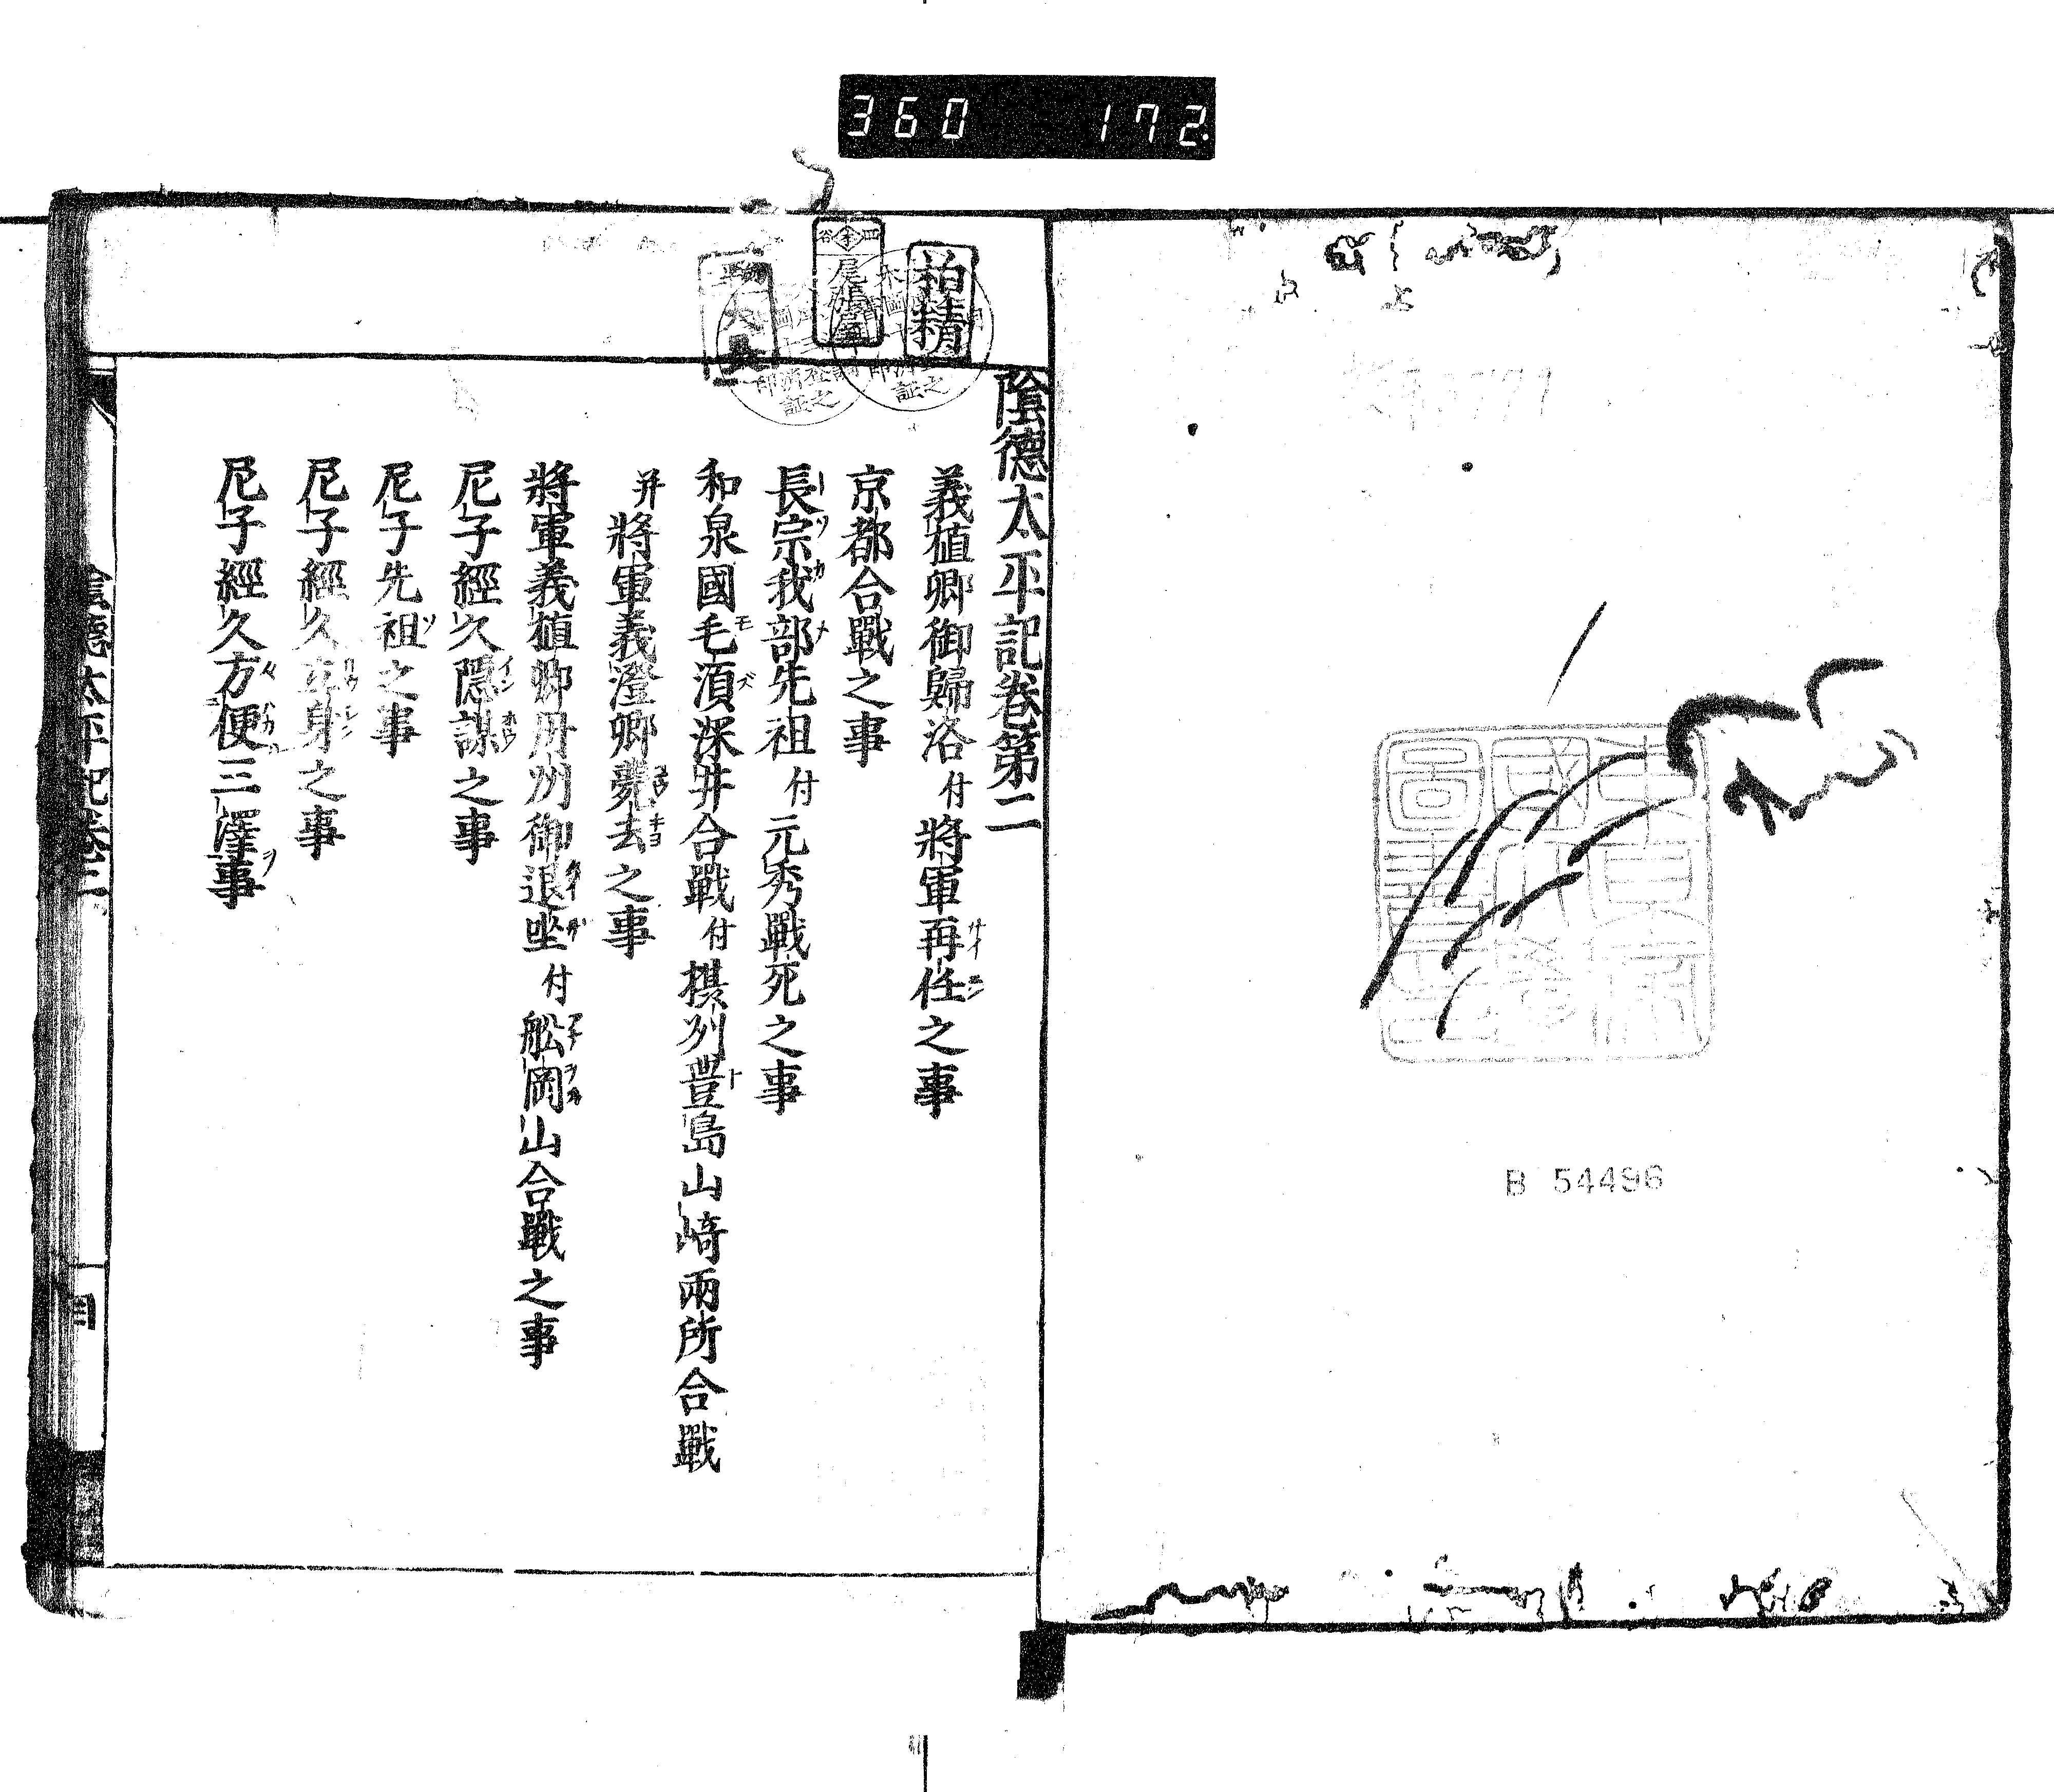 360 172
B 54496
柏精
尾張屋
陰德太平記卷第二
義植卿御歸洛付將軍再任之事
京都合戰之事
長宗我部先祖付元秀戰死之事
和泉國毛湏深井合戰付摂州豐島山崎兩所合戰
并將軍義澄卿薨去之事
將軍義植卿丹州御退坐付舩岡山合戰之事
尼子經久隱謀之事
尼子先祖之事
尼子經久立身之事
尼子經久方便三澤事
陰德太平記卷二